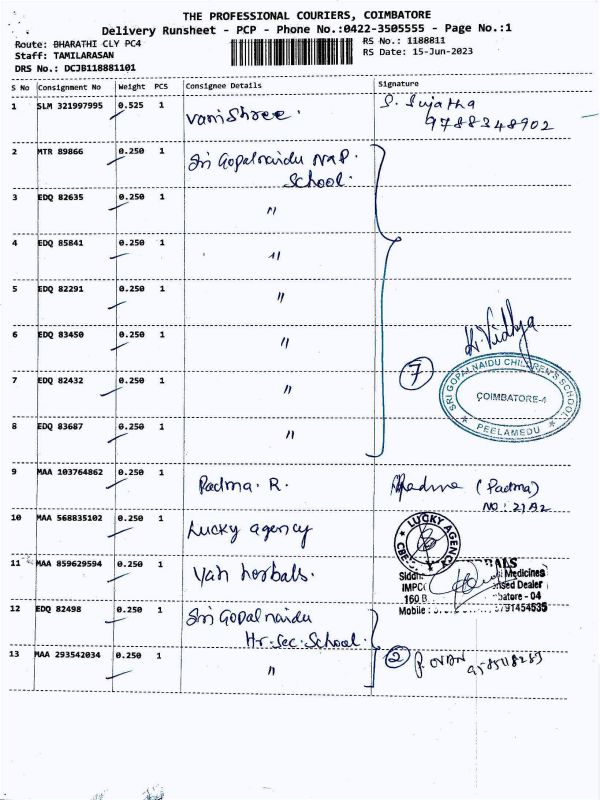 THE PROFESSIONAL COURIERS, COIMBATORE
Delivery Runsheet - PCP - Phone No.:0422-3505555 - Page No.:1
Route: BHARATHI CLY PC4
RS No.: 1188811
Staff: TAMILARASAN
RS Date: 15-Jun-2023
DRS No.: DCJB118881101
S No Consignment No Weight PCS Consignee Details Signature
1 SLM 321997995 0.525 1 Vanishree. S. Sujatha
9788348902
2 MTR 89866 0.250 1 Sri Gopalnaidu
School.
3 EDQ 82635 0.250 1 "
4 EDQ 85841 0.250 1 "
5 EDQ 82291 0.250 1 "
6 EDQ 83450 0.250 1 " K. Vidhya
7 EDQ 82432 0.250 1 " 7
SRI GOPALNAIDU CHILDREN'S SCHOOL
COIMBATORE-4
★ PEELAMEDU ★
8 EDQ 83687 0.250 1 "
9 MAA 103764862 0.250 1 Padma. R. Padma (Padma)
NO: 21A2
10 MAA 568835102 0.250 1 Lucky agency
LUCKY AGENCY
CBE
11 MAA 859629594 0.250 1 Yah herbals.
Medicines
Dealer
160 B
- 04
Mobile :
12 EDQ 82498 0.250 1 Sri Gopalnaidu
Hr. Sec. School.
13 MAA 293542034 0.250 1 " 2